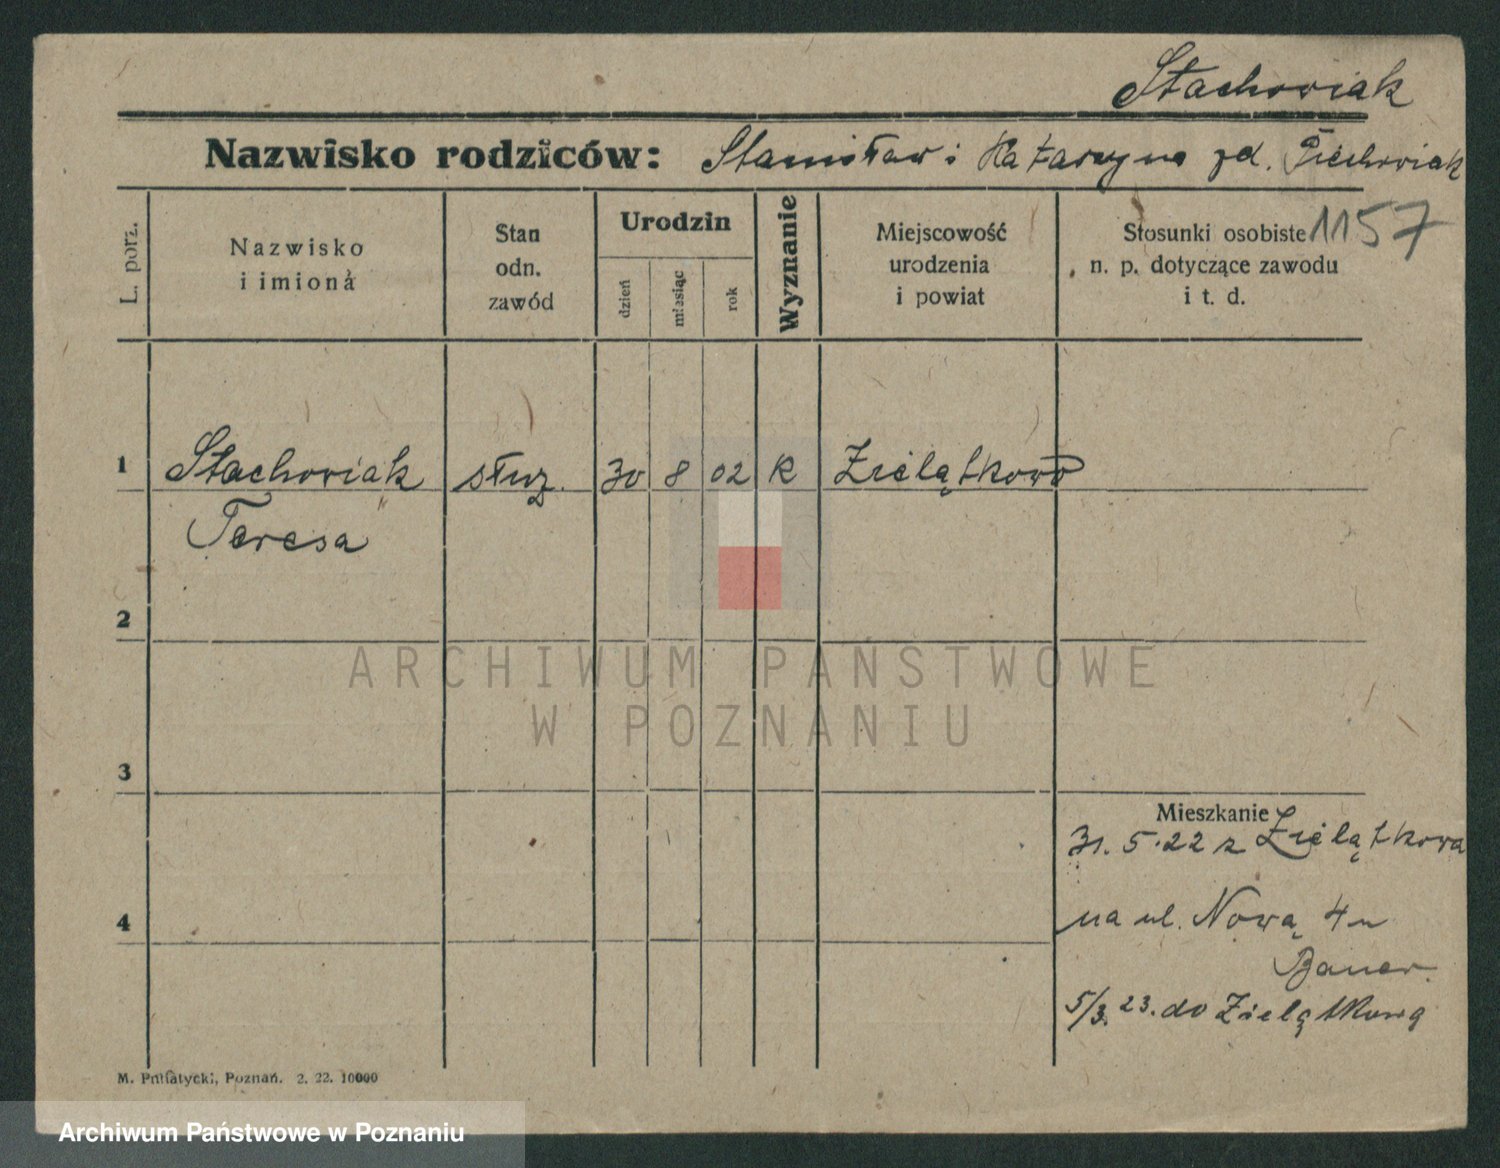 Stachowiak
Nazwisko rodziców: Stanisław i Katarzyna zd. Piechowiak
1157
L. porz.
Nazwisko
i imiona
Stan
odn.
zawód
Urodzin
dzień
miesiąc
rok
Wyznanie
Miejscowość
urodzenia
i powiat
Stosunki osobiste
n. p. dotyczące zawodu
i t. d.
1 Stachowiak służ. 30 8 02 K Zielątkowo
Teresa
2
ARCHIWUM PAŃSTWOWE
W POZNANIU
3
Mieszkanie
31. 5. 22 z Zielątkowa
4
na ul. Nową 4 u
Bauer.
5/3. 23. do Zielątkowa
M. Putiatycki, Poznań. 2. 22. 10000
Archiwum Państwowe w Poznaniu